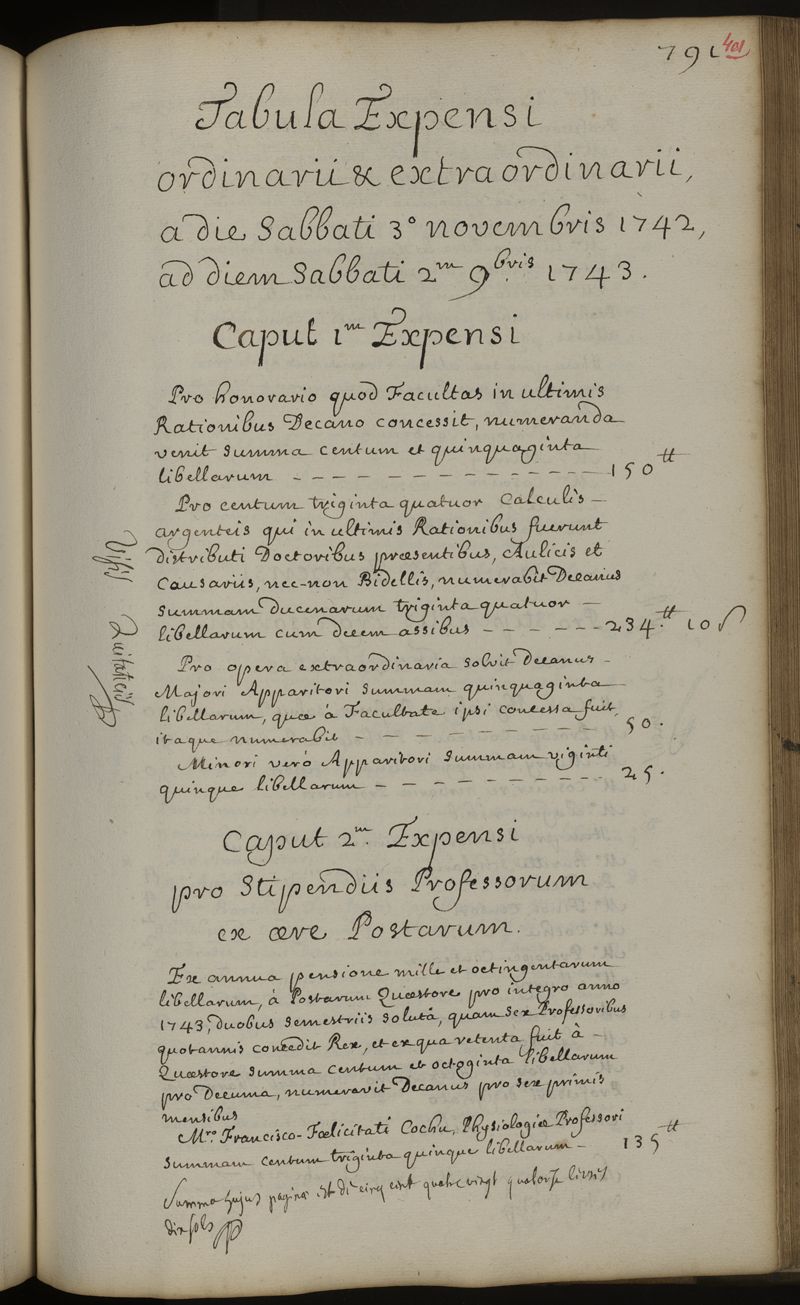 791
401
Tabula Expensi
ordinarii & extraordinarii,
a die Sabbati 3° novembris 1742,
ad diem Sabbati 2m 9bris 1743.
Caput 1m Expensi
Pro honorario quod Facultas in ultimis
Rationibus Decano concessit, numeranda
venit summa centum et quinquaginta
libellarum - - - - - - - - - - - - - - 150tt
Pro centum triginta quatuor Calculis -
argenteis qui in ultimis Rationibus fuerunt
distributi Doctoribus præsentibus, Aulicis et
Causariis, nec-non Bidellis, numerabit Decanus
summam ducenarum triginta quatuor -
libellarum cum decem assibus - - - - - - 234.tt 10ſ
Visis Quitanciis
Pro opera extraordinaria solvit Decanus -
Majori Apparitori summam quinquaginta
libellarum, quæ à Facultate ipsi concessa fuit,
itaque numerabit - - - - - - - - - - 50.
Minori verò Apparitori summam viginti
quinque libellarum - - - - - - - - - - 25.
Caput 2m. Expensi
pro Stipendiis Professorum
ex ære Postarum.
Ex annua pensione mille et octingentarum
libellarum, à Postarum Quæstore pro integro anno
1743, duobus semestriis solutâ, quam sex Professoribus
quotannis concedit Rex, et ex qua retenta fuit à -
Quæstore summa centum et octoginta libellarum
pro Decuma, numeravit Decanus pro sex primis
mensibus
Mro. Francisco-Fœlicitati Cochu, Physiologiæ Professori
summam centum triginta quinque libellarum - 135tt
Summa hujus paginæ est de cinq cent quatre vingt quatorze livres
dix sols